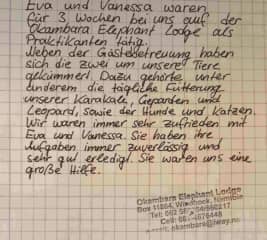 Eva und Vanessa waren
für 3 Wochen bei uns auf der
Okambara Elephant Lodge als
Praktikanten tätig.
Neben der Gästebetreuung haben
sich die zwei um unsere Tiere
gekümmert. Dazu gehörte unter
anderem die tägliche Fütterung
unserer Karakale, Geparden und
Leopard, sowie der Hunde und Katzen.
Wir waren immer sehr zufrieden mit
Eva und Vanessa. Sie haben ihre
Aufgaben immer zuverlässig und
sehr gut erledigt. Sie waren uns eine
große Hilfe.
Okambara Elephant Lodge
Box 11864, Windhoek, Namibia
Tel: 062
Cell: